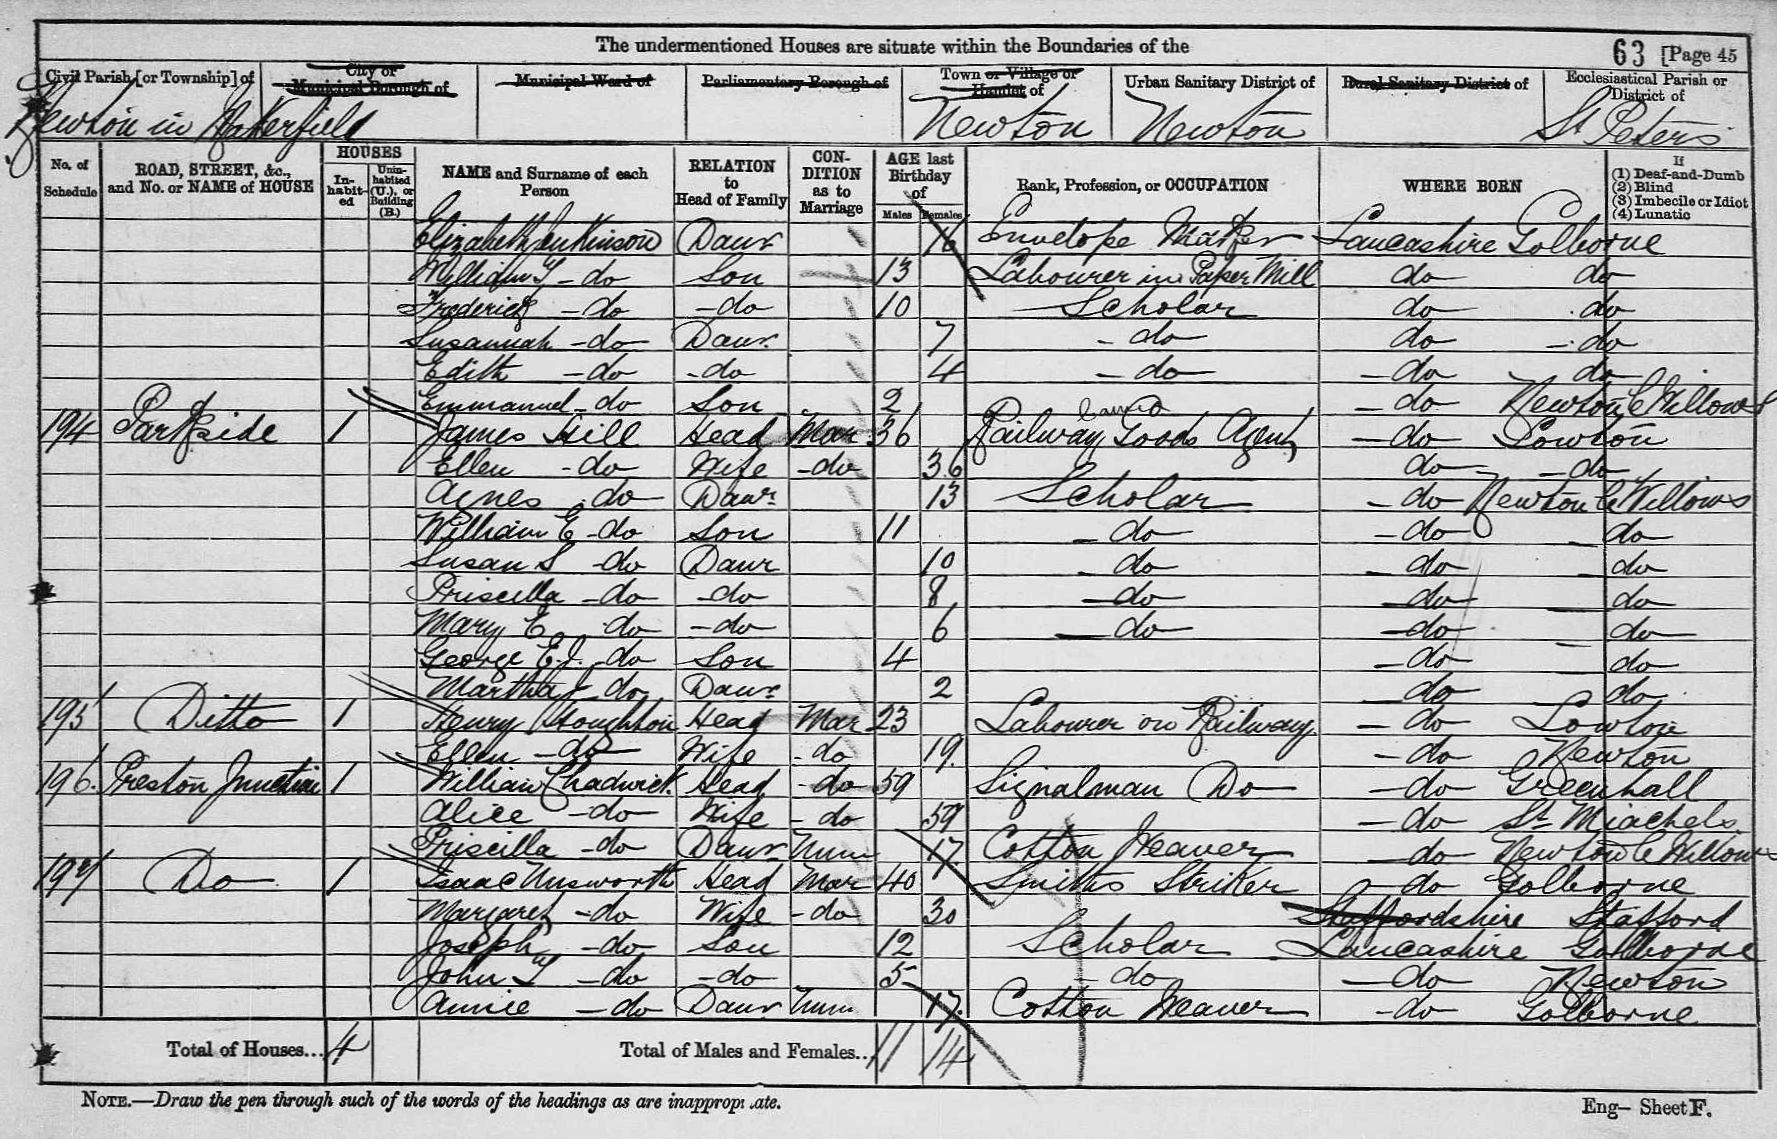 The undermentioned Houses are situate within the Boundaries of the
63 [Page 45
Civil Parish [or Township] of
City or Municipal Borough of
Municipal Ward of
Parliamentary Borough of
Town or Village or Hamlet of
Urban Sanitary District of
Rural Sanitary District of
Ecclesiastical Parish or District of
Newton in Makerfield Newton Newton St Peters
No. of Schedule
ROAD, STREET, &c., and No. or NAME of HOUSE
HOUSES
In-habit-ed
Unin-habited (U.), or Building (B.)
NAME and Surname of each Person
RELATION to Head of Family
CON-DITION as to Marriage
AGE last Birthday of
Males Females
Rank, Profession, or OCCUPATION
WHERE BORN
If
(1) Deaf-and-Dumb
(2) Blind
(3) Imbecile or Idiot
(4) Lunatic
Elizabeth Jenkinson Daur 16 Envelope Maker Lancashire Golborne
William T do Son 13 Labourer in Paper Mill do do
Frederick do do 10 Scholar do do
Susannah do Daur 7 do do do
Edith do do 4 do do do
Emmanuel do Son 2 do Newton le Willows
194 Parkside 1 James Hill Head Mar 36 Railway Goods Agent do Lowton
Ellen do Wife do 36 do do
Agnes do Daur 13 Scholar do Newton le Willows
William E do Son 11 do do do
Susan S do Daur 10 do do do
Priscilla do do 8 do do do
Mary E do do 6 do do do
George E.J. do Son 4 do do
Martha J do Daur 2 do do
195 Ditto 1 Henry Houghton Head Mar 23 Labourer on Railway do Lowton
Ellen do Wife do 19 do Newton
196 Preston Junction 1 William Chadwick Head do 59 Signalman Do do Greenhall
Alice do Wife do 59 do St Miachels
Priscilla do Daur Unm 17 Cotton Weaver do Newton le Willows
197 Do 1 Isaac Unsworth Head Mar 40 Smiths Striker do Golborne
Margaret do Wife do 30 Staffordshire Stafford
Joseph do Son 12 Scholar Lancashire Golborne
John T do do 5 do do Newton
Annie do Daur Unm 17 Cotton Weaver do Golborne
Total of Houses... 4 Total of Males and Females... 11 14
NOTE.—Draw the pen through such of the words of the headings as are inappropriate.
Eng— Sheet F.